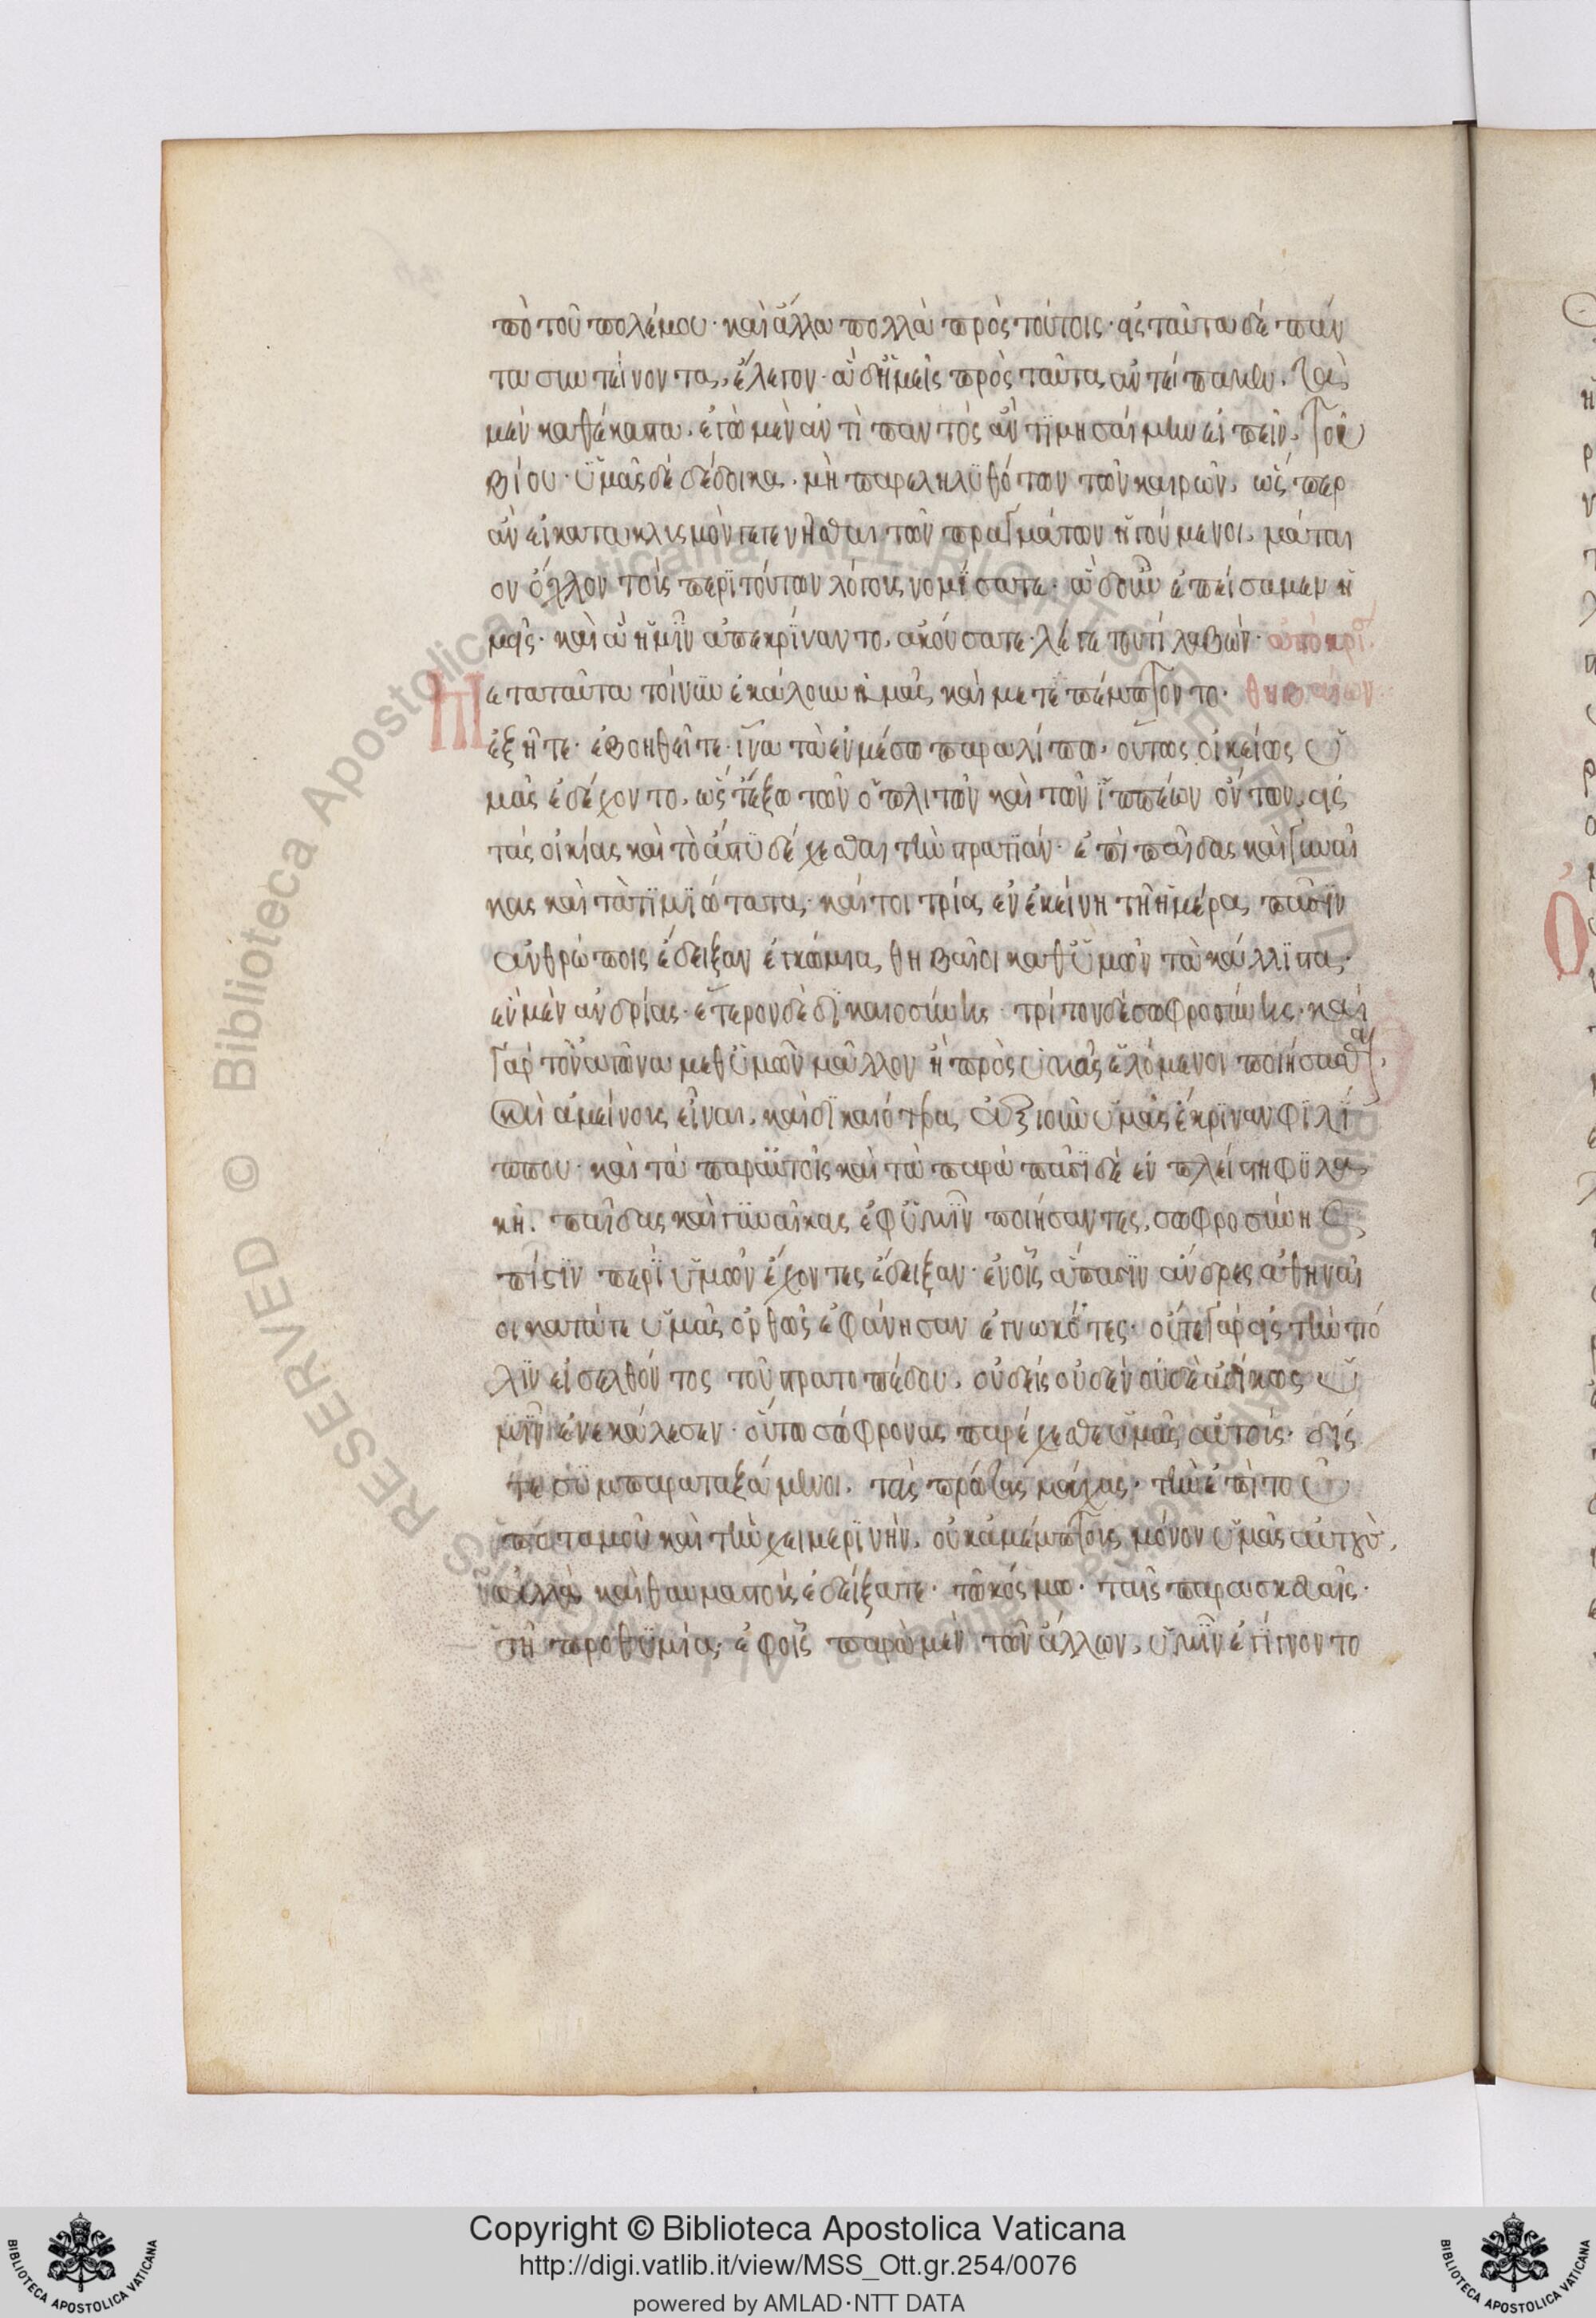 πὸ τοῦ πολέμου· καὶ ἄλλα πολλὰ πρὸς τούτοις· εἰς ταῦτα δὲ πάν
τα συντείνοντας, ἔλεγον· ἃ δ' ἡμεῖς πρὸς ταῦτα ἀντείπαμεν, τὰ
μὲν καθ' έκαστα, ἐγὼ μὲν ἀντὶ παντὸς ἂν τιμησαίμην εἰπεῖν, τοῦ
βίου· ὑμᾶς δὲ δέδοικα, μὴ παρεληλυθότων τῶν καιρῶν, ὥσπερ
ἂν εἰ κατακλισμὸν γεγενῆσθαι τῶν πραγμάτων ἡγούμενοι, μάται
ον ὄχλον τοῖς περὶ τούτων λόγους νομίσατε· ἃ δ' οὖν ἐπείσαμεν ἡ
μεῖς· καὶ ἃ ἡμῖν ἀπεκρίναντο, ἀκούσατε· λέγε τουτὶ λαβών· ἀπόκρι
μετὰ ταῦτα τοίνυν ἐκάλουν ἡμᾶς καὶ μετεπέμποντο· θηβαίων
ἐξῆτε· ἐβοηθεῖτε· ἵνα τὰ ἐν μέσω παραλίπω, οὕτως οἰκείως ὑ
μᾶς ἐδέχοντο, ὥστ' ἔξω τῶν ὁπλιτῶν καὶ τῶν ἱππέων ὄντων, εἰς
τὰς οἰκίας καὶ τὸ ἄστυ δέχεσθαι τὴν στρατιάν· ἐπὶ παῖδας καὶ γυναῖ
κας καὶ τὰ τιμιώτατα· καίτοι τρία ἐν ἐκείνη τῆ ἡμέρα πᾶσιν
ἀνθρώποις ἔδειξαν ἐγκώμια θηβαῖοι καθ' ὑμῶν τὰ κάλλιστα·
ἓν μὲν ἀνδρίας· ἕτερον δὲ δικαιοσύνης· τρίτον δὲ σωφροσύνης· καὶ
γὰρ τὸν ἀγῶνα μεθ' ὑμῶν μᾶλλον ἢ πρὸς ὑμᾶς ἑλόμενοι ποιήσασθαι,
καὶ ἀμείνους εἶναι, καὶ δικαιότερα ἀξιοῦν ὑμᾶς ἔκριναν φιλί
ππου· καὶ τὰ παρ' αὐτοῖς καὶ τὰ παρὰ πᾶσι δὲ ἐν πλείστη φυλα
κῆ. παῖδας καὶ γυναῖκας ἐφ' ὑμῖν ποιήσαντες, σωφροσύνης
πίστιν περὶ ὑμῶν ἔχοντες ἔδειξαν· ἐν οἷς ἅπασιν ἄνδρες ἀθηναῖ
οι κατά τε ὑμᾶς ὀρθῶς ἐφάνησαν ἐγνωκότες· οὔτε γὰρ εἰς τὴν πό
λιν εἰσελθόντος τοῦ στρατοπέδου, οὐδεὶς οὐδὲν οὐδὲ ἀδίκως ὑ
μῖν ἐνεκάλεσεν· οὕτω σώφρονας παρέχεσθε ὑμᾶς αὐτούς· δίς
τε συμπαραταξάμενοι, τὰς πρώτας μάχας, τὴν ἐπὶ τοῦ
ποταμοῦ καὶ τὴν χειμερινὴν, οὐκ ἀμέμπτους μόνον ὑμᾶς αὐτοὺς,
ἀλλὰ καὶ θαυμαστοὺς ἐδείξατε· τῶ κόσμω· ταῖς παρασκευαῖς·
τῆ προθυμία· ἐφ' οἷς παρὰ μὲν τῶν ἄλλων, ὑμῖν ἐγίγνοντο
Copyright © Biblioteca Apostolica Vaticana
http://digi.vatlib.it/view/MSS_Ott.gr.254/0076
powered by AMLAD·NTT DATA